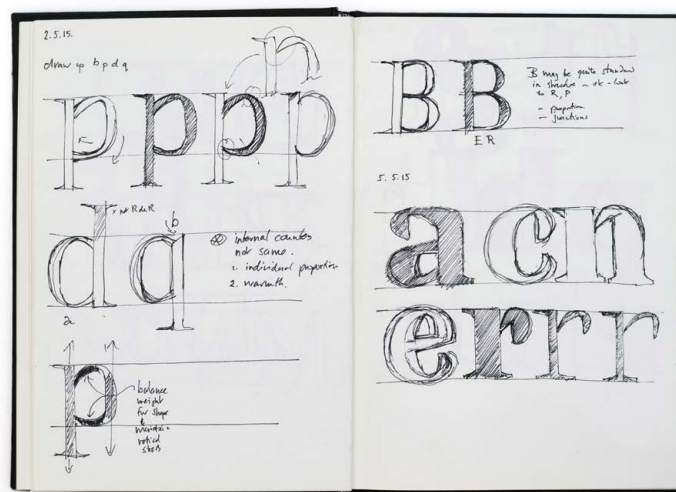 2.5.15.
draw up b p d q
n
p p p p
b
d q
internal counters
not same.
1. individual proportion
2. warmth.
a
p
balance
weight
for shape
&
maintain
vertical
stress
B B
B may be quite standard
in structure
to R, P
– proportion
– junctions
E R
5.5.15
a c n
e r r r